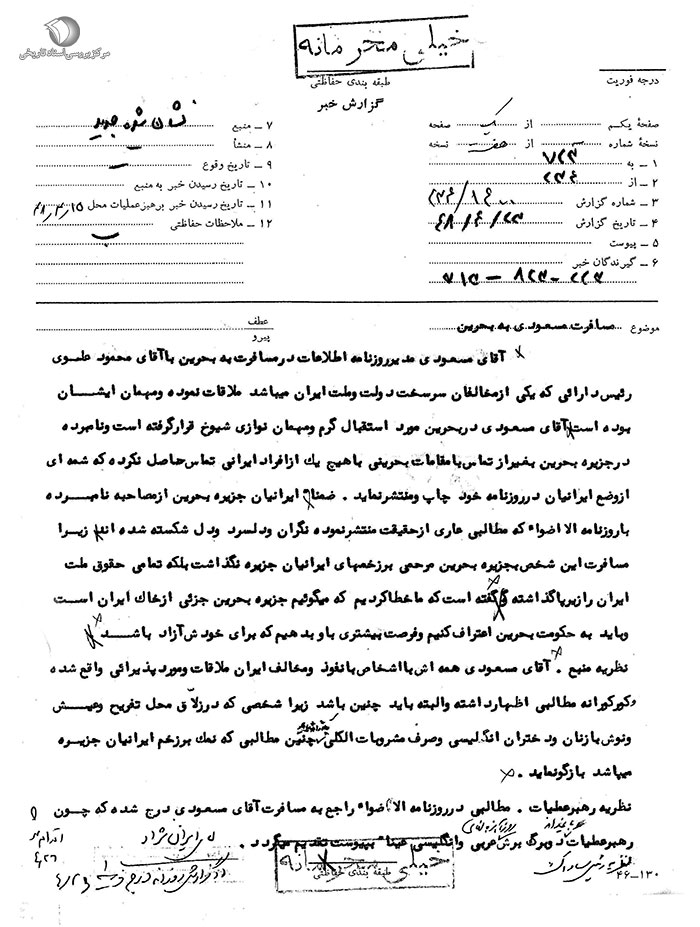 مرکز بررسی اسناد تاریخی
خیلی محرمانه
طبقه بندی حفاظتی
گزارش خبر
درجه فوریت
صفحهٔ یکم از یک صفحه
نسخهٔ شماره از هفت نسخه
۱ ـ به ۷۲۳
۲ ـ از
۳ ـ شماره گزارش
۴ ـ تاریخ گزارش
۵ ـ پیوست
۶ ـ گیرندگان خبر
۷ ـ منبع
۸ ـ منشأ
۹ ـ تاریخ وقوع
۱۰ ـ تاریخ رسیدن خبر به منبع
۱۱ ـ تاریخ رسیدن خبر برهبر عملیات محل ۴۸٫۳٫۱۵
۱۲ ـ ملاحظات حفاظتی
موضوع مسافرت مسعودی به بحرین
عطف
پیرو
آقای مسعودی مدیر روزنامه اطلاعات در مسافرت به بحرین با آقای محمود علوی
رئیس دارائی که یکی از مخالفان سرسخت دولت وملت ایران میباشد ملاقات نموده ومهمان ایشان
بوده است آقای مسعودی در بحرین مورد استقبال گرم ومهمان نوازی شیوخ قرار گرفته است ونامبرده
در جزیره بحرین بغیر از تماس با مقامات بحرینی با هیچ یك از افراد ایرانی تماس حاصل نکرده که شمه ای
از وضع ایرانیان در روزنامه خود چاپ ومنتشر نماید . ضمنا ایرانیان جزیره بحرین از مصاحبه نامبرده
با روزنامه الاضواء که مطالبی عاری از حقیقت منتشر نموده نگران ودلسرد ودل شکسته شده اند زیرا
مسافرت این شخص بجزیره بحرین مرحمی بر زخمهای ایرانیان جزیره نگذاشت بلکه تمامی حقوق ملت
ایران را زیر پا گذاشته و گفته است که ما خطا کردیم که میگوئیم جزیره بحرین جزئی از خاك ایران است
وباید به حکومت بحرین اعتراف کنیم وفرصت بیشتری باو بدهیم که برای خودش آزاد باشد
نظریه منبع . آقای مسعودی همه اش با اشخاص با نفوذ ومخالف ایران ملاقات ومورد پذیرائی واقع شده
وکورکورانه مطالبی اظهار داشته والبته باید چنین باشد زیرا شخصی که در زلاق محل تفریح وعیش
ونوش با زنان ودختران انگلیسی وصرف مشروبات الکلی چنین مطالبی که نمك بر زخم ایرانیان جزیره
میباشد بازگو نماید .
نظریه رهبر عملیات . مطالبی در روزنامه الاضواء راجع به مسافرت آقای مسعودی درج شده که چون
رهبر عملیات دو برگ برش عربی وانگلیسی عینا بپیوست تقدیم میگردد .
ایرانی نژاد
در گزارش روزانه درج
۴٫۲۶
خیلی محرمانه
طبقه بندی حفاظتی
۴۶–۱۳۰